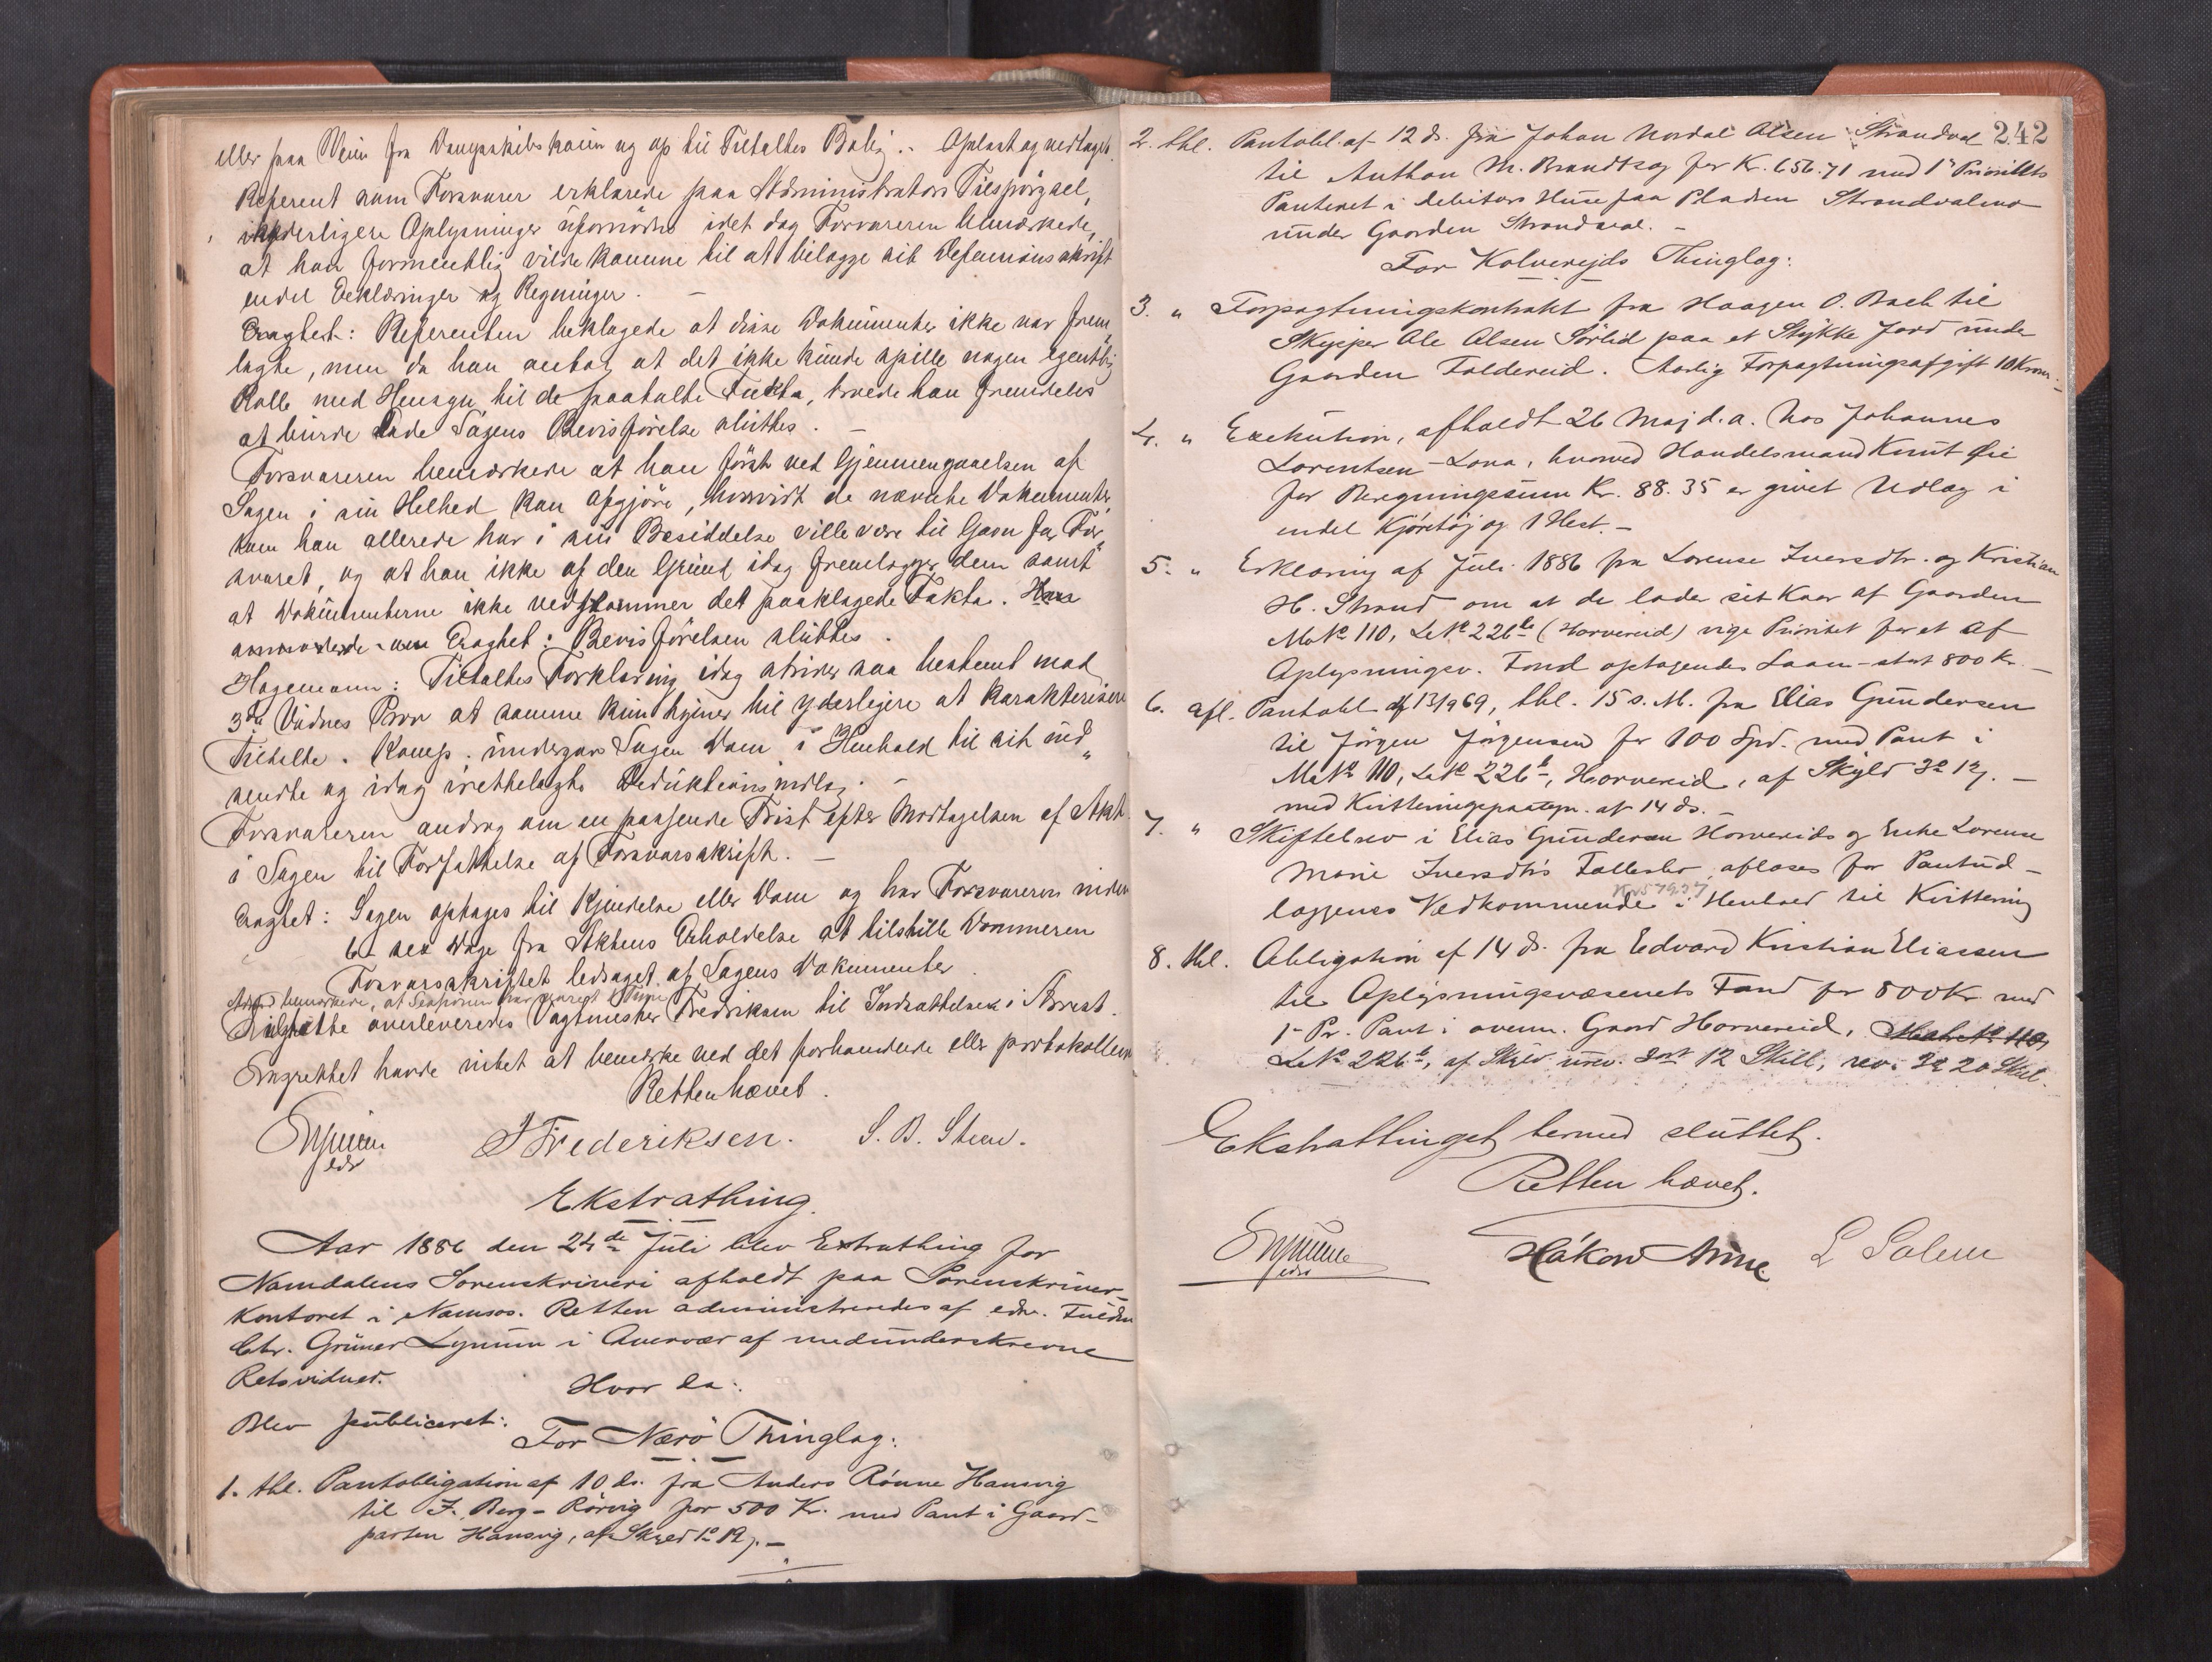 eller paa Veien fra Dampskibskaien og op til Tiltaltes Bolig.- Oplæst og vedtaget.
Referent som Forsvarer erklærede paa Administrators Tilspørgsel,
yderligere Oplysninger ufornødne idet dog Forsvareren bemærkede,
at han formentlig vilde komme til at bilægge sit Defensionsskrift
endel Erklæringer og Regninger. -
Eragtet: Referenten beklagede at disse Dokumenter ikke var frem„
lagte, men da han antog at det ikke kunde spille nogen egentlig
Rolle med Hensyn til de paatalte Fakta, troede han fremdeles
at burde lade Sagens Bevisførelse sluttes. -
Forsvareren bemærkede at han først ved Gjennemgaaelsen af
Sagen i sin Helhed kan afgjøre, hvorvidt de nævnte Dokumenter,
som han allerede har i sin Besiddelse ville være til Gavn for For„
svaret, og at han ikke af den Grund idag fremlægger dem samt
at Dokumenterne ikke vedkommer det paaklagede Fakta. Han
Eragtet: Bevisførelsen sluttes.
Hagemann: Tiltaltes Forklaring idag strider saa bestemt mod
3de Vidnes Prov at samme kun tjener til yderligere at karakterisere
Tiltalte. Komp. undergav Sagen Dom i Henhold til sit ind„
sendte og idag irettelagte Deduktionsindlæg. -
Forsvareren androg om en passende Frist efter Modtagelsen af Akt.
i Sagen til Forfattelse af Forsvarsskrift. -
Eragtet: Sagen optages til Kjendelse eller Dom og har Forsvareren inden
6 - sex Dage fra Aktens Erholdelse at tilstille Dommeren
Forsvarsskriftet ledsaget af Sagens Dokumenter.
bemærkede, at Sessionen har varet Time
Tiltalte overleveredes Vagtmester Fredriksen til Indsættelse i Arrest.
Ingen i Rettet havde intet at bemærke ved det forhandlede eller protokollerede
Retten hævet.
edr
J Frederiksen. S. B. Steen.
Ekstrathing.
Aar 1886 den 24de Juli blev Extrathing for
Namdalens Sorenskriveri afholdt paa Sorenskriver-
kontoret i Namsos. Retten administreredes af edsv. Fuldm.
Chr. Grüner Lynum i Overvær af medunderskrevne
Retsvidner.
Hvor da:
Blev publiceret:
For Nærö Thinglag:
1. thl. Pantobligation af 10 ds. fra Anders Rönne Hansvig
til F. Berg - Rörvig for 500 Kr. med Pant i Gaard-
parten Hansvig, af Skyld 1 12 . -
242
2. thl. Pantobl. af 12 ds. fra Johan Nordal Olsen Strandval
til Anthon M. Brandtzæg for Kr. 656.71 med 1ste Prioritets
Panteret i debitors Huse paa Pladsen Strandvalmo
under Gaarden Strandval. -
For Kolvereids Thinglag:
3. „ Forpagtningskontrakt fra Haagen O. Bach til
Skipper Ole Olsen Sörlid paa et Stykke Jord under
Gaarden Foldereid. Aarlig Forpagtningsafgift 10 Kroner. -
4. „ Exekution, afholdt 26 Maj d.a. hos Johannes
Lorentsen - Lona, hvorved Handelsmand Knut Øie
for Beregningssum Kr. 88.35 er givet Udlæg i
endel Kjöretöj og 1 Hest. -
5. „ Erklæring af Juli 1886 fra Lorense Iversdtr. og Kristian
H. Strand om at de lader sit Kaar af Gaarden
M.No 110, L.No 226b (Horvereid) vige Prioritet for et af
Oplysningsv. Fond optagendes Laan - stort 800 Kr. -
6. afl. Pantobl. af 13/9 69, thl. 15 s.M. fra Elias Gundersen
til Jörgen Jörgensen for 100 Spd. med Pant i
M.No 110, L.No 226b, Horvereid, af Skyld 3 12 . -
med Kvitteringspaategn. af 14 ds. -
7. „ Skiftebrev i Elias Gundersen Horvereids og Enke Lorense
Marie Iversdtr's Fællesbo, aflæses for Pantud-
læggenes Vedkommende i Henhold til Kvittering
8. thl. Obligation af 14 ds. fra Edvard Kristian Eliassen
til Oplysningsvæsenets Fond for 800 Kr. med
1ste Pr. Pant i ovenn. Gaard Horvereid, Matr. No 110,
L.No 226b, af Skyld urev. 3 ort 12 Skill, rev. 3 20 Skill.
Ekstrathinget hermed sluttet.
Retten hævet.
edsv
Håkon L Salem